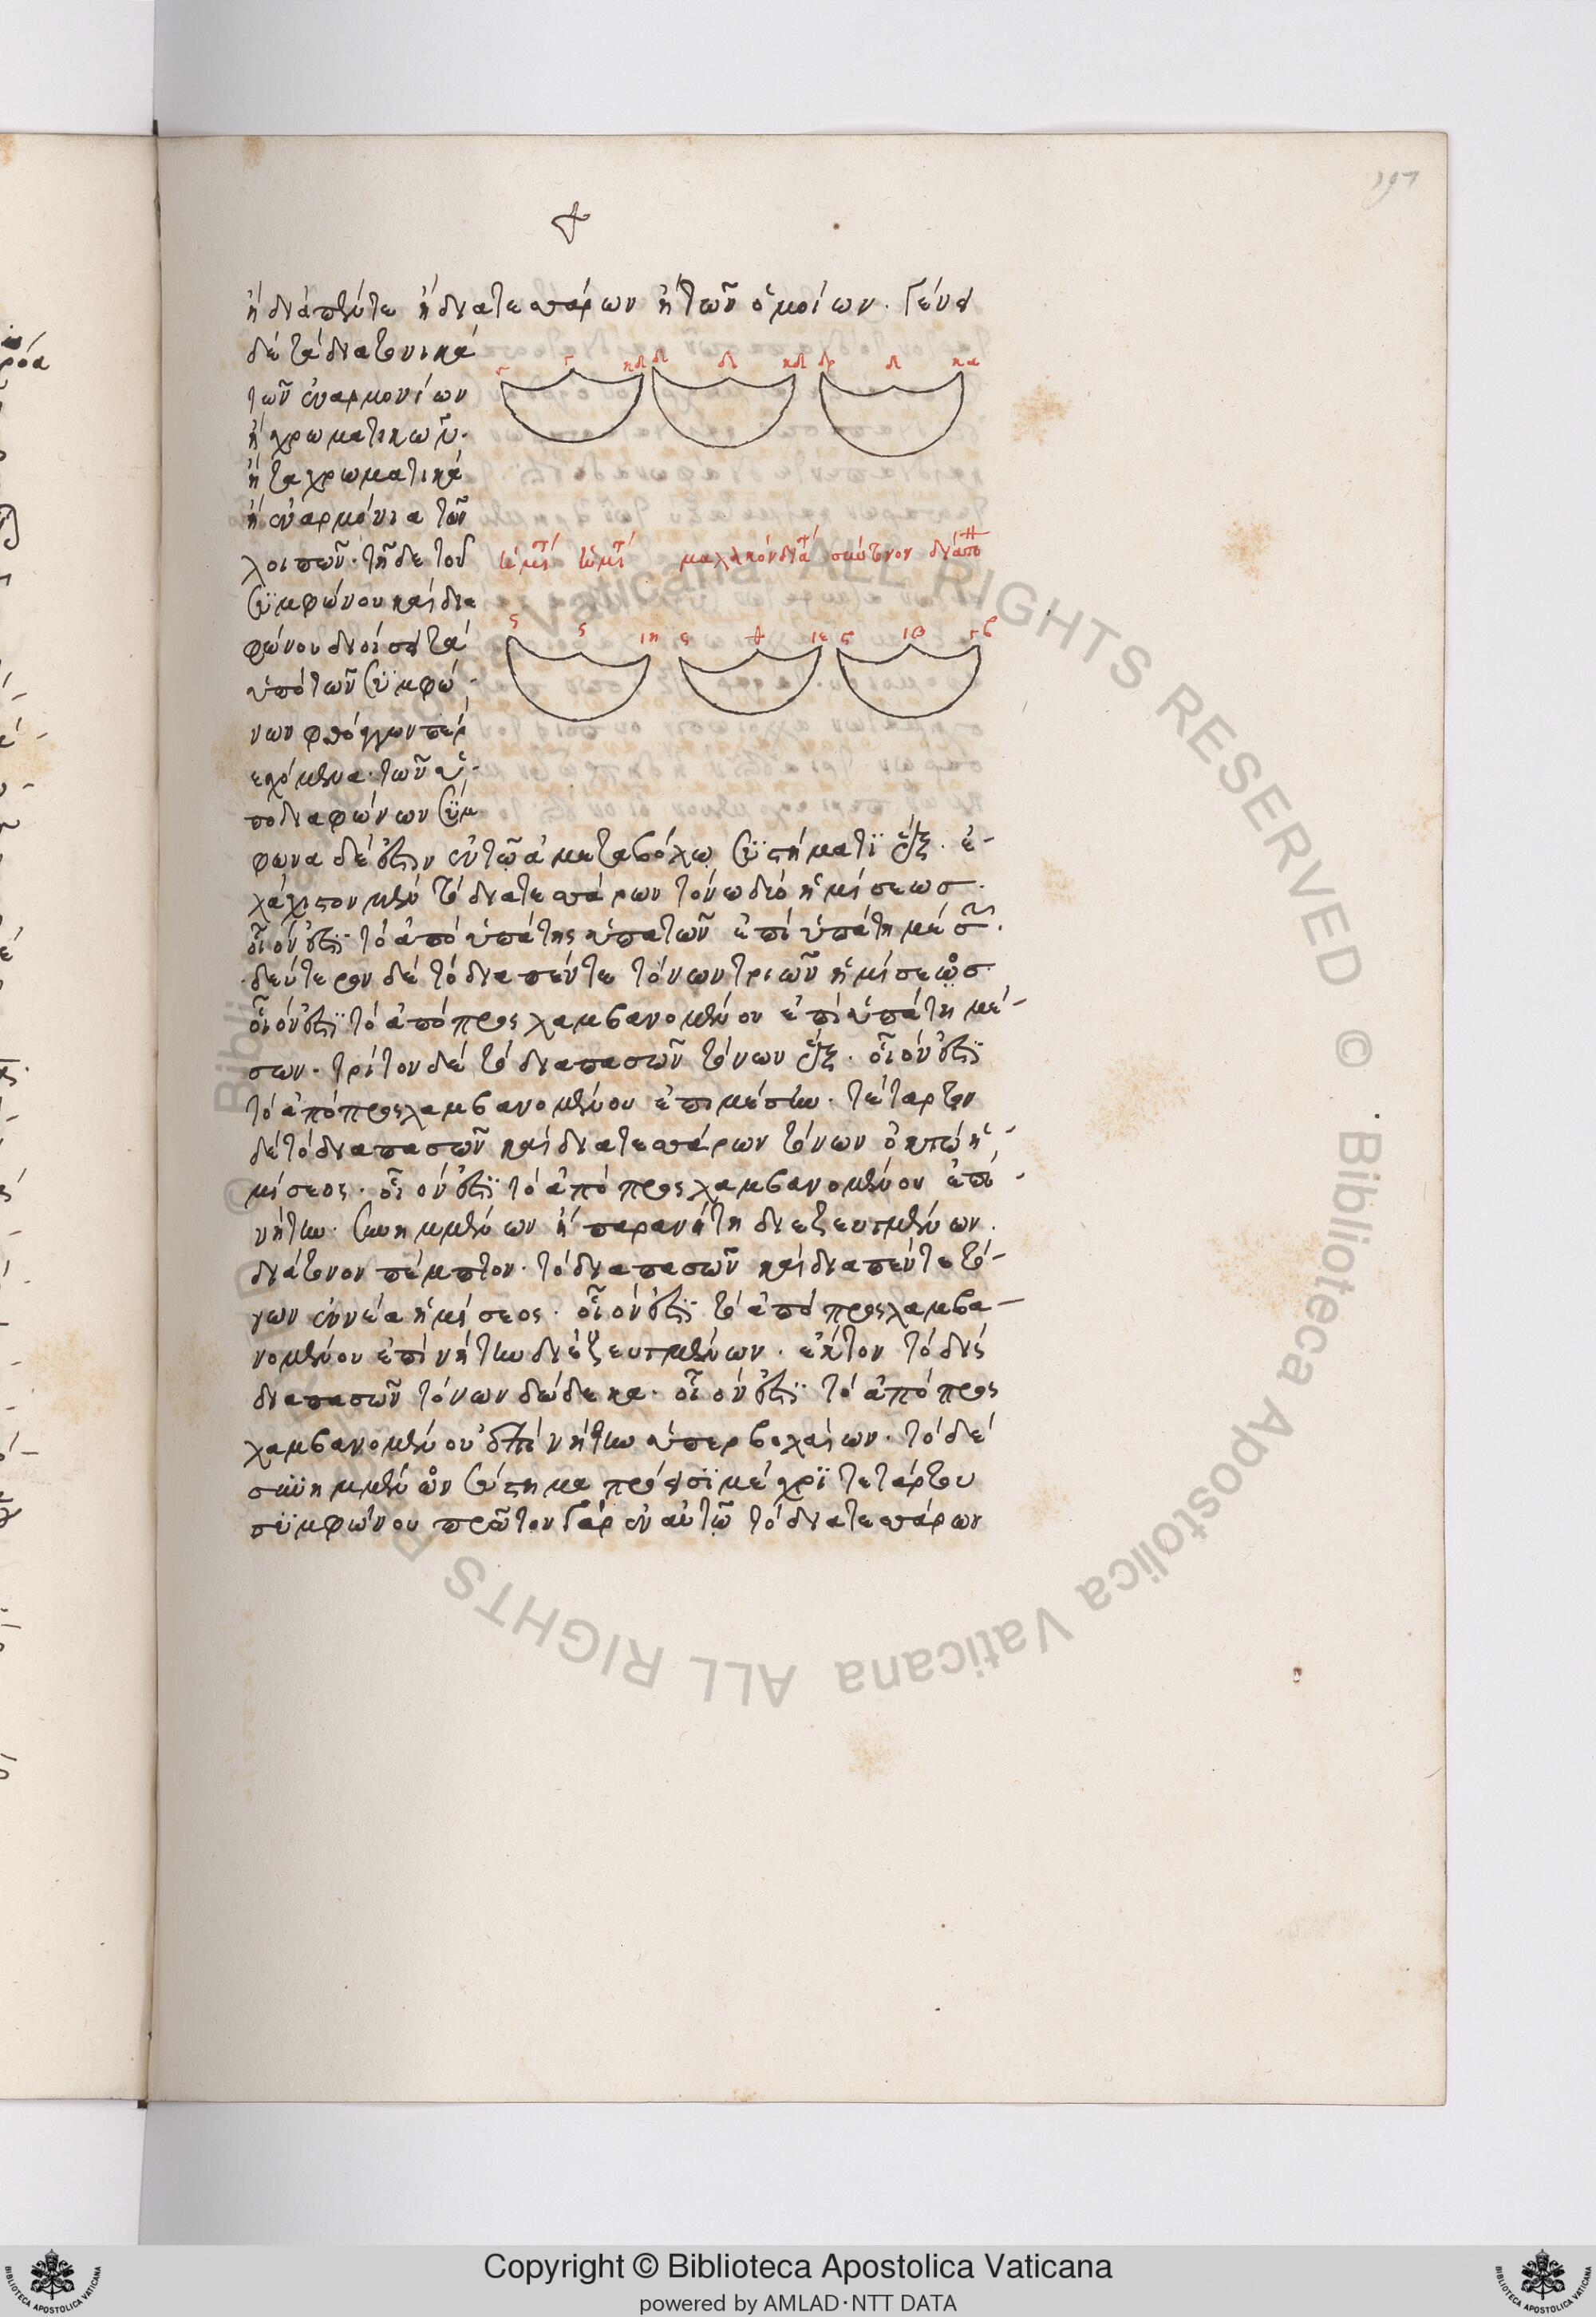 197
ἢ διὰ πέντε ἢ διατεσσάρων ἢ τῶν ὁμοίων. Γένει
δὲ τὰ διατονικὰ
τῶν ἐναρμονίων
ἢ χρωματικῶν.
ἢ τα χρωματικὰ
ἢ ἐναρμόνια τῶν
λοιπῶν. τῆ δε τοῦ
συμφώνου καὶ δια
φώνου διοίσει τὰ
ὑπὸ τῶν συμφώ
νων φθόγγων περι
εχόμενα. τῶν ὑ
πο διαφώνων σύμ
φωνα δέ ἐστιν ἐν τῷ ἀμεταβόλῳ συστήματι ἕξ. ἐ-
λάχιστον μὲν τὸ διατεσσάρων τόνω δύο ἡμίσεως.
οἷόν ἐστι τὸ ἀπὸ ὑπάτης ὑπατῶν ἐπὶ ὑπάτη μέσ.
δεύτερον δὲ τὸ δια πέντε τόνων τριῶν ἡμίσεως.
οἷόν ἐστι τὸ ἀπὸ προσλαμβανομένου ἐπὶ ὑπάτη μέ-
σων. τρίτον δὲ τὸ διαπασῶν τόνων ἕξ. οἷόν ἐστι
τὸ ἀπὸ προσλαμβανομένου ἐπι μέσην. τέταρτον
δὲ τὸ διαπασῶν καὶ διατεσσάρων τόνων ὀκτὼ ἡ-
μίσεος. οἷόν ἐστι τὸ ἀπὸ προσλαμβανομένου ἐπὶ
νήτην. συνημμένων ἢ παρανήτη διεζευγμένων.
διάτονον πέμπτον. τὸ διαπασῶν καὶ διαπέντε τό-
νων ἐννέα ἡμίσεος. οἷόν ἐστι τὸ ἀπὸ προσλαμβα-
νομένου ἐπὶ νήτην διεζευγμένων. ἕκτον τὸ δὶς
διαπασῶν τόνων δώδεκα. οἷόν ἐστι τὸ ἀπὸ προς
λαμβανομένου ἐπὶ νήτην ὑπερβολαίων. τὸ δὲ
συνημμένων σύστημα πρόεισι μέχρι τετάρτου
συμφώνου πρῶτον γάρ ἐν αὐτῷ τὸ διατεσσάρων
Copyright © Biblioteca Apostolica Vaticana
powered by AMLAD·NTT DATA
© Biblioteca Apostolica Vaticana ALL RIGHTS RESERVED © Biblioteca Apostolica Vaticana ALL RIGHTS RESERVED